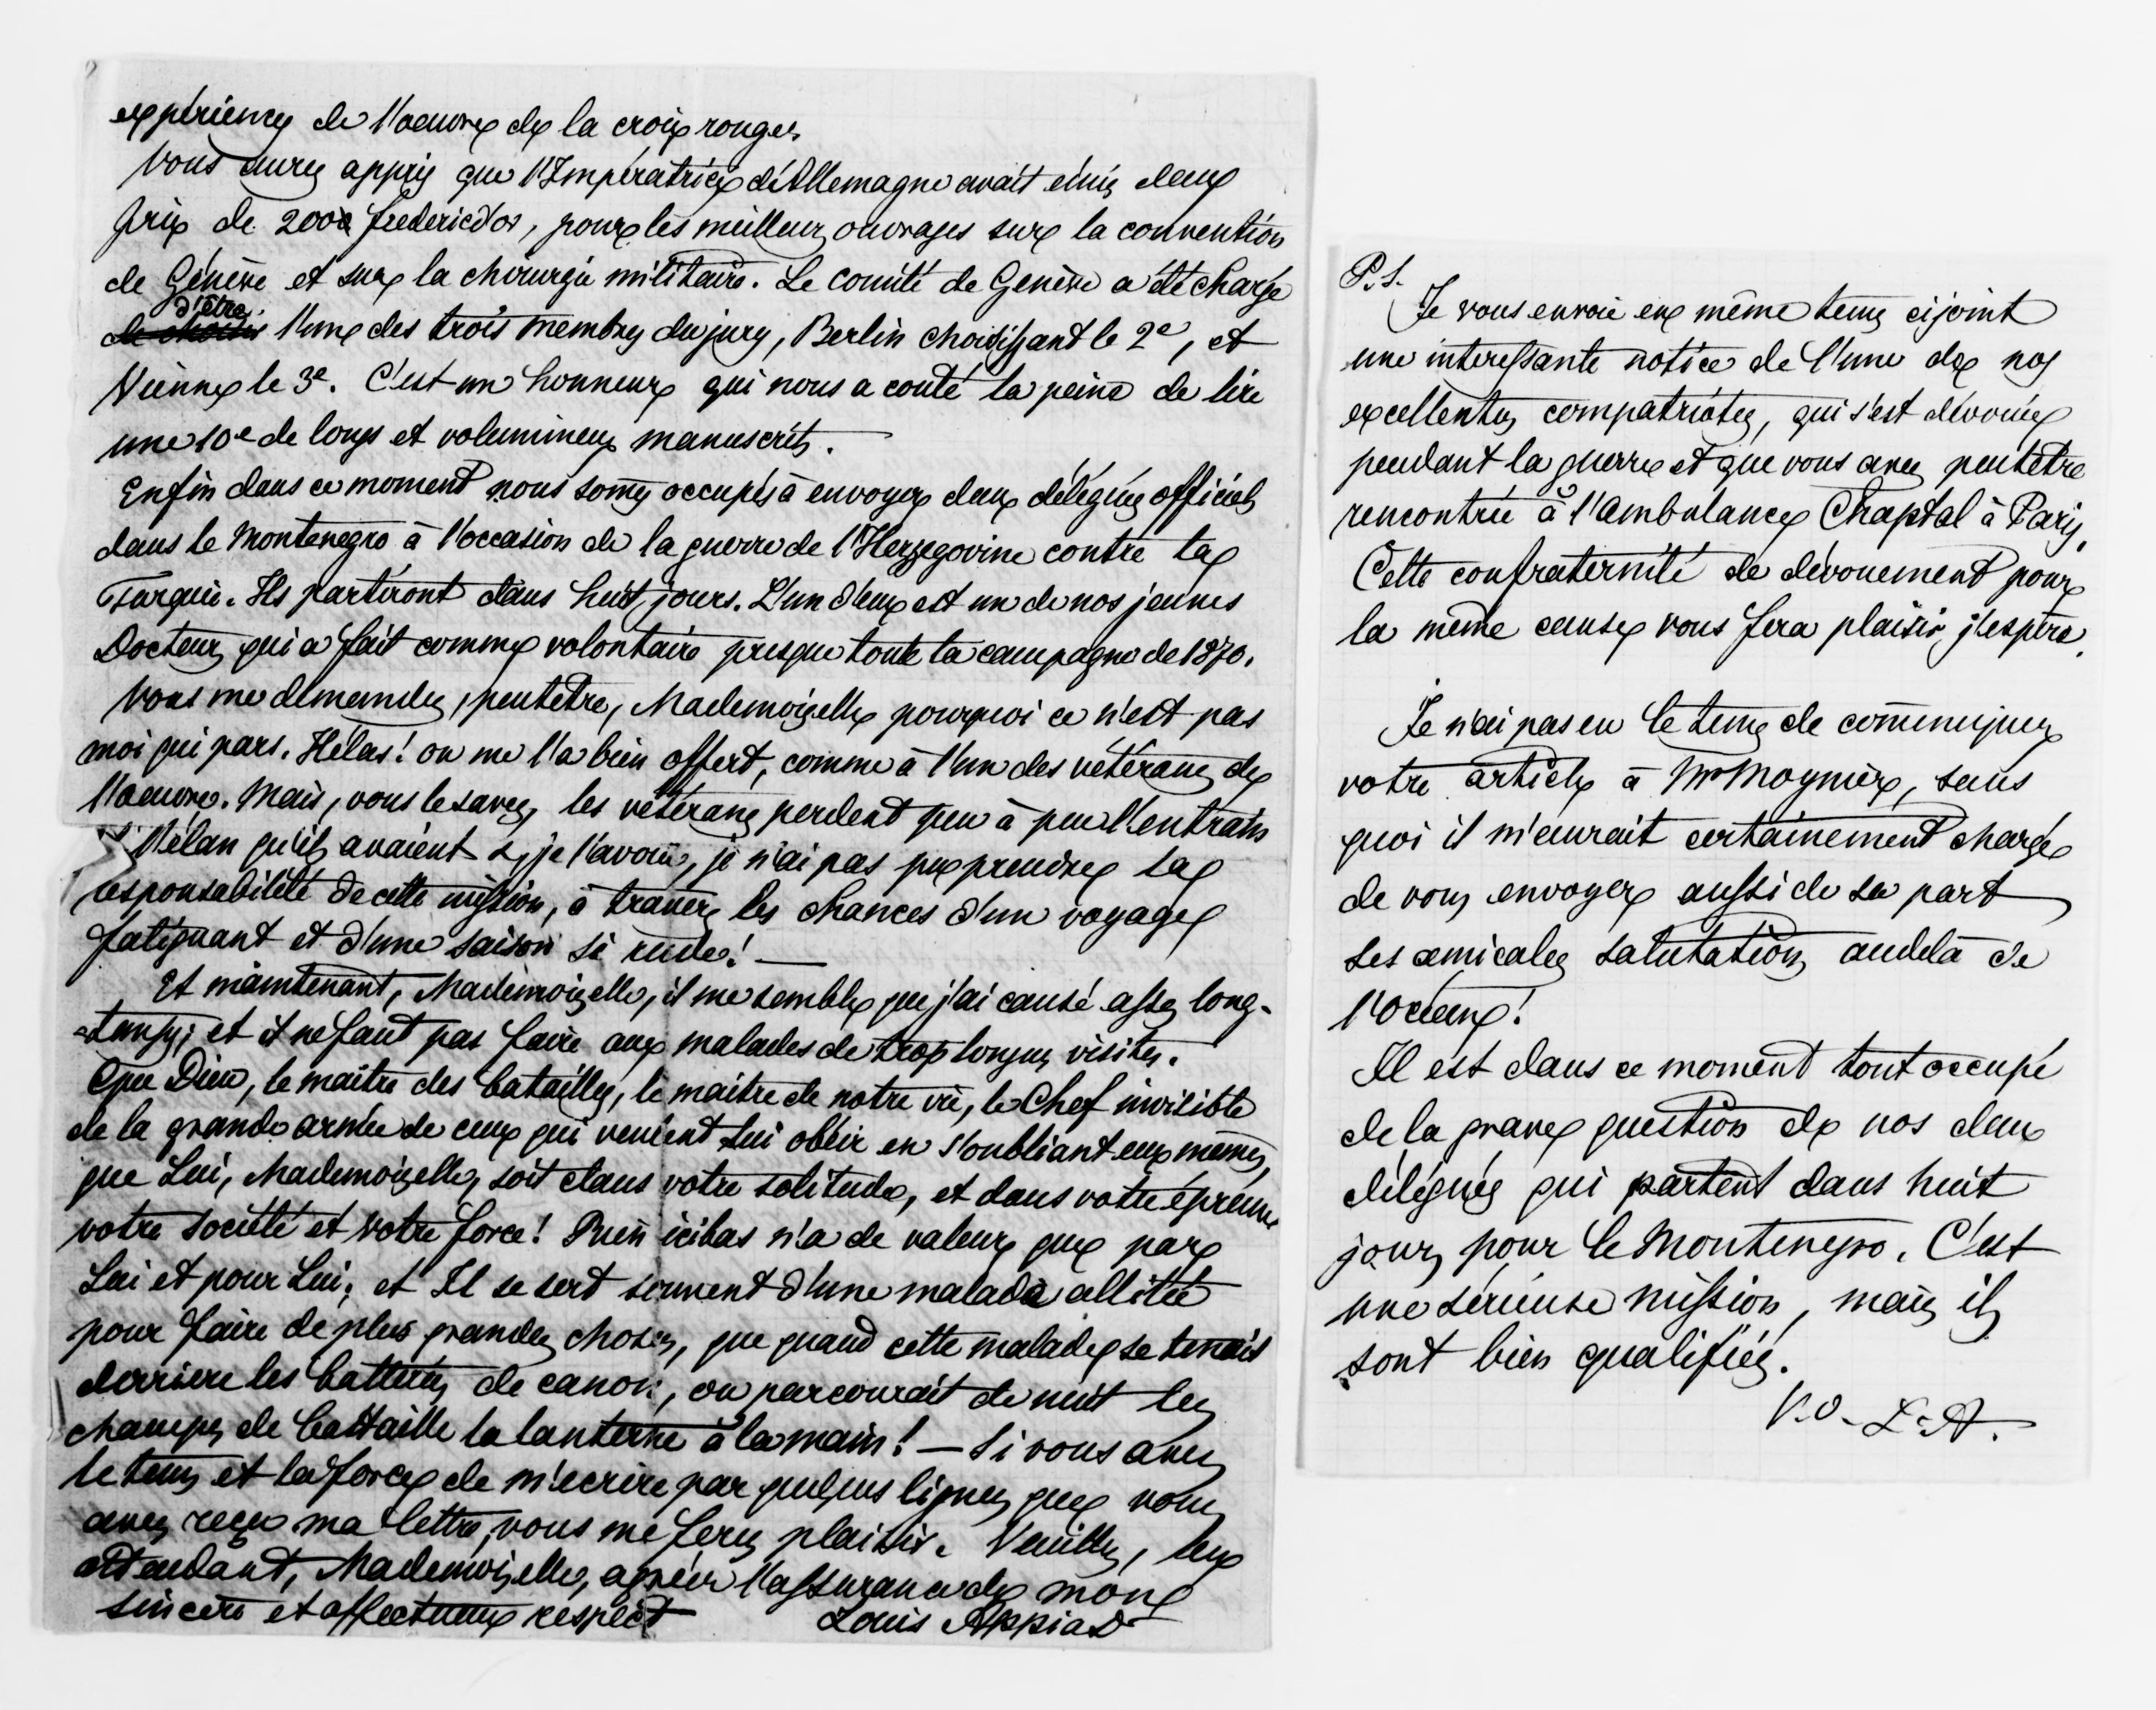 expérience de l'oeuvre de la croix rouge.
Vous aurez appris que l'Impératrice d'Allemagne avait émis deux
prix de 2000 frederic d'or, pour les meilleurs ouvrages sur la convention
de Génève et sur la chirurgie militaire. Le comité de Genève a été chargé
d'être
de choisir l'une des trois membres du jury, Berlin choisissant le 2e, et
Vienne le 3e. C'est un honneur qui nous a couté la peine de lire
une 10e de longs et volumineux manuscrits.
Enfin dans ce moment nous somes occupés à envoyer deux délégués officiels
dans le Montenegro à l'occasion de la guerre de l'Herzegovine contre la
Turquie. Ils partiront dans huit jours. L'un d'eux est un de nos jeunes
Docteurs qui a fait comme volontaire presque toute la campagne de 1870.
Vous me demandez, peutetre, Mademoizelle pourquoi ce n'est pas
moi qui pars. Hélas! on me l'a bien offert, comme à l'un des vétérans de
l'oeuvre. Mais, vous le savez, les vétérans perdent peu à peu l'entrain
l'élan qu'ils avaient &, je l'avoue, je n'ai pas pu prendre la
responsabilité de cette mission, à travers les chances d'un voyage
fatiguant et d'une saison si rude! —
Et maintenant, Mademoizelle, il me semble que j'ai causé assez long-
-temps; et il ne faut pas faire aux malades de trop longues visites.
Que Dieu, le maitre des batailles, le maitre de notre vie, le Chef invisible
de la grande armée de ceux qui veulent lui obéir en s'oubliant eux mêmes,
que Lui, Mademoizelle, soit dans votre solitude, et dans votre épreuve
votre société et votre force! Rien icibas n'a de valeur que par
Lui et pour Lui; et Il se sert souvent d'une malade allitée
pour faire de plus grandes choses, que quand cette malade se tenait
derriere les batteries de canon, ou parcourait de nuit les
champs de battaille la lanterne à la main! — Si vous avez
le tems et la force de m'ecrire par quelques lignes que vous
avez reçu ma lettre, vous me ferez plaisir. Veuillez, en
attendant, Mademoizelle, agréer l'assurance de mon
sincère et affectueux respect Louis Appia Dr
P.S.
Je vous envoie en même tems cijoint
une interessante notice de l'une de nos
excellentes compatriotes, qui s'est dévouée
pendant la guerre et que vous avez peutetre
rencontrée à l'ambulance Chaptal à Paris.
Cette confraternité de dévouement pour
la même cause vous fera plaisir, j'espère.
Je n'ai pas eu le tems de comuniquer
votre article à Mr Moynier, sans
quoi il m'aurait certainement chargé
de vous envoyer aussi de sa part
ses amicales salutations audela de
l'océan!
Il est dans ce moment tout occupé
de la grave question de nos deux
délégués qui partent dans huit
jours pour le Montenegro. C'est
une sérieuse mission, mais ils
sont bien qualifiés.
V.D. L.A.